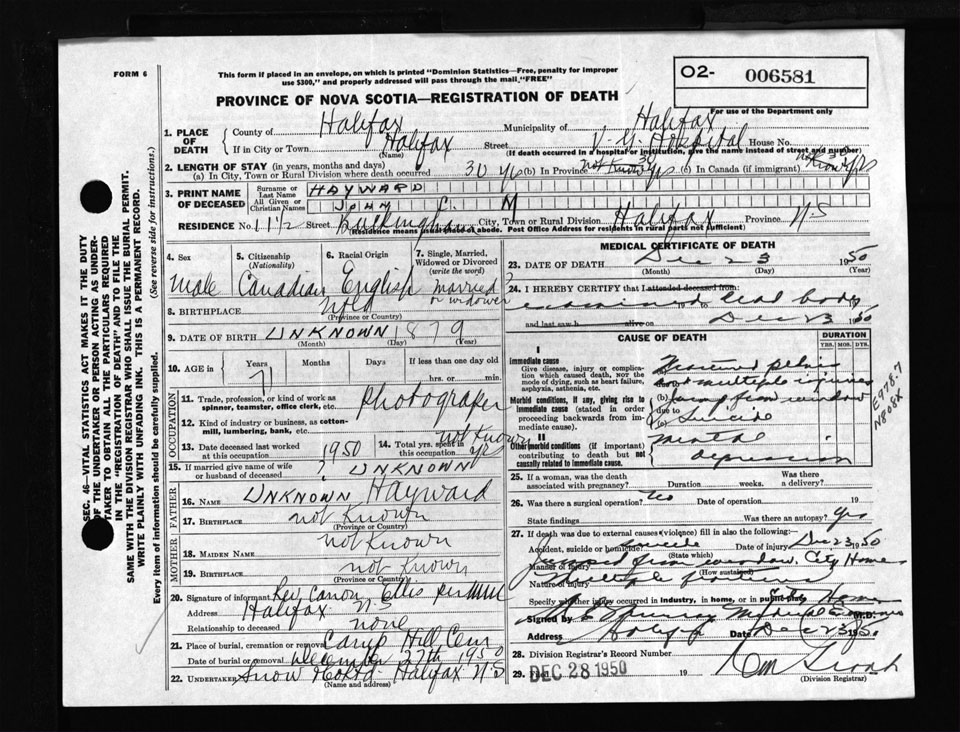 FORM 6
This form if placed in an envelope, on which is printed "Dominion Statistics—Free, penalty for improper
use $300," and properly addressed will pass through the mail, "FREE"
O2- 006581
PROVINCE OF NOVA SCOTIA—REGISTRATION OF DEATH
For use of the Department only
1. PLACE OF DEATH
County of Halifax Municipality of Halifax
If in City or Town Halifax Street V. G. Hospital House No.
(Name) (If death occurred in a hospital or institution, give the name instead of street and number)
2. LENGTH OF STAY (in years, months and days)
(a) In City, Town or Rural Division where death occurred 30 yrs (b) In Province not Know 30 yrs (c) In Canada (if immigrant) 30 yrs
3. PRINT NAME OF DECEASED
Surname or Last Name HAYWARD
All Given or Christian Names JOHN C. M
RESIDENCE No. 11½ Street City, Town or Rural Division Halifax Province N.S
(Residence means usual place of abode. Post Office Address for residents in rural parts not sufficient)
4. Sex
5. Citizenship (Nationality)
6. Racial Origin
7. Single, Married, Widowed or Divorced (write the word)
Male Canadian English married or widower
8. BIRTHPLACE Nfld
(Province or Country)
9. DATE OF BIRTH UNKNOWN 1879
(Month) (Day) (Year)
10. AGE in Years Months Days If less than one day old
71 hrs. or min.
OCCUPATION
11. Trade, profession, or kind of work as spinner, teamster, office clerk, etc. Photographer
12. Kind of industry or business, as cotton-mill, lumbering, bank, etc.
13. Date deceased last worked at this occupation 1950
14. Total yrs. spent in this occupation not Known yrs
15. If married give name of wife or husband of deceased ? UNKNOWN
FATHER
16. NAME UNKNOWN Hayward
17. BIRTHPLACE not Known
(Province or Country)
MOTHER
18. MAIDEN NAME not Known
19. BIRTHPLACE not Known
(Province or Country)
20. Signature of informant Rev. Canon Ellis per
Address Halifax N.S
Relationship to deceased none
21. Place of burial, cremation or removal Camp Hill Cem
Date of burial or removal December 27th 1950
22. UNDERTAKER Snow Halifax N.S
(Name and address)
MEDICAL CERTIFICATE OF DEATH
23. DATE OF DEATH Dec 23 1950
(Month) (Day) (Year)
24. I HEREBY CERTIFY that I attended deceased from:
examined dead body
and last saw h alive on Dec 23 1950
CAUSE OF DEATH
DURATION
YRS. MOS. DYS.
I
Immediate cause
Give disease, injury or complication which caused death, not the mode of dying, such as heart failure, asphyxia, asthenia, etc.
Fractured pelvis
and multiple injuries
Morbid conditions, if any, giving rise to immediate cause (stated in order proceeding backwards from immediate cause).
(b) jump from window
due to
(c) Suicide
II
Other morbid conditions (if important) contributing to death but not causally related to immediate cause.
Mental
depression
E978.7
N808X
25. If a woman, was the death associated with pregnancy? Duration weeks. Was there a delivery?
26. Was there a surgical operation? No Date of operation 19
State findings Was there an autopsy? Yes
27. If death was due to external causes (violence) fill in also the following:
Accident, suicide or homicide? Suicide Date of injury Dec 23 1950
(State which)
Manner of injury Jumped from window, City Home
(How sustained)
Nature of injury Multiple fractures
Specify whether injury occurred in industry, in home, or in public place City Home
Signed by Medical Examiner M.D.
Address Halifax Date Dec 23 1950
28. Division Registrar's Record Number
29. Filed DEC 28 1950 19
(Division Registrar)
SEC. 46—VITAL STATISTICS ACT MAKES IT THE DUTY
OF THE UNDERTAKER OR PERSON ACTING AS UNDER-
TAKER TO OBTAIN ALL THE PARTICULARS REQUIRED
IN THE "REGISTRATION OF DEATH" AND TO FILE THE
SAME WITH THE DIVISION REGISTRAR WHO SHALL ISSUE THE BURIAL PERMIT.
WRITE PLAINLY WITH UNFADING INK. THIS IS A PERMANENT RECORD.
Every item of information should be carefully supplied. (See reverse side for instructions.)